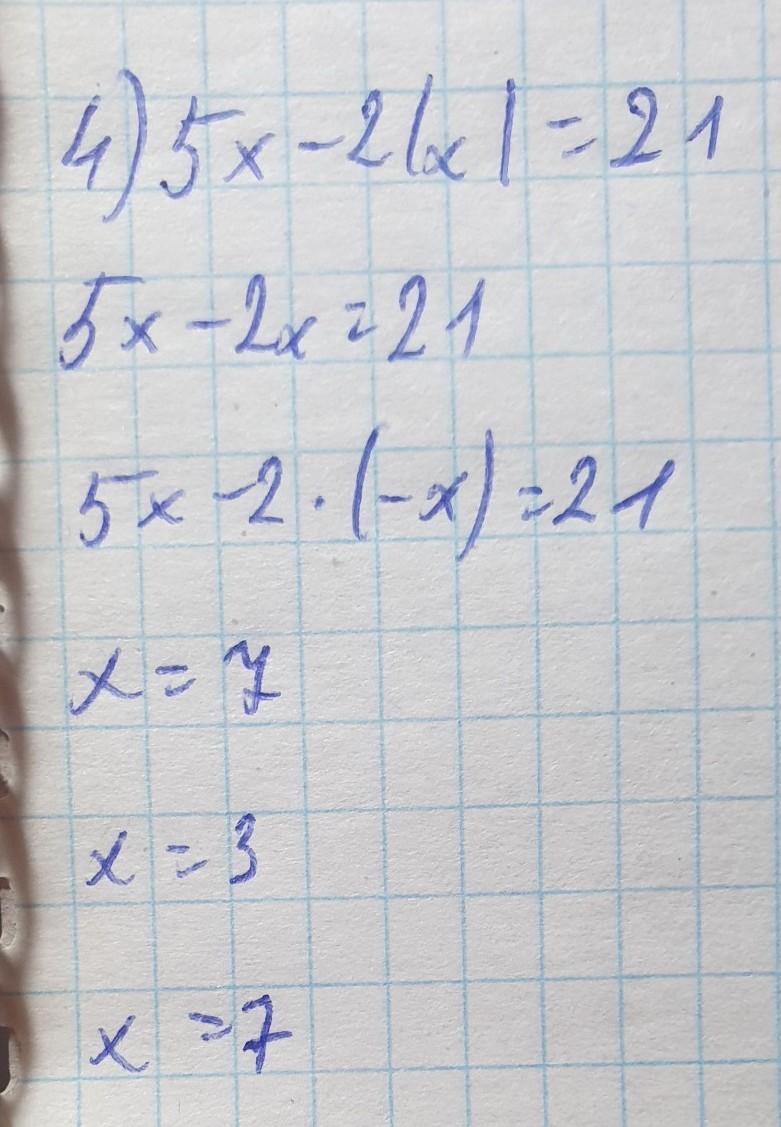 4) 5x - 2|x| = 21
5x - 2x = 21
5x - 2 · (-x) = 21
x = 7
x = 3
x = 7